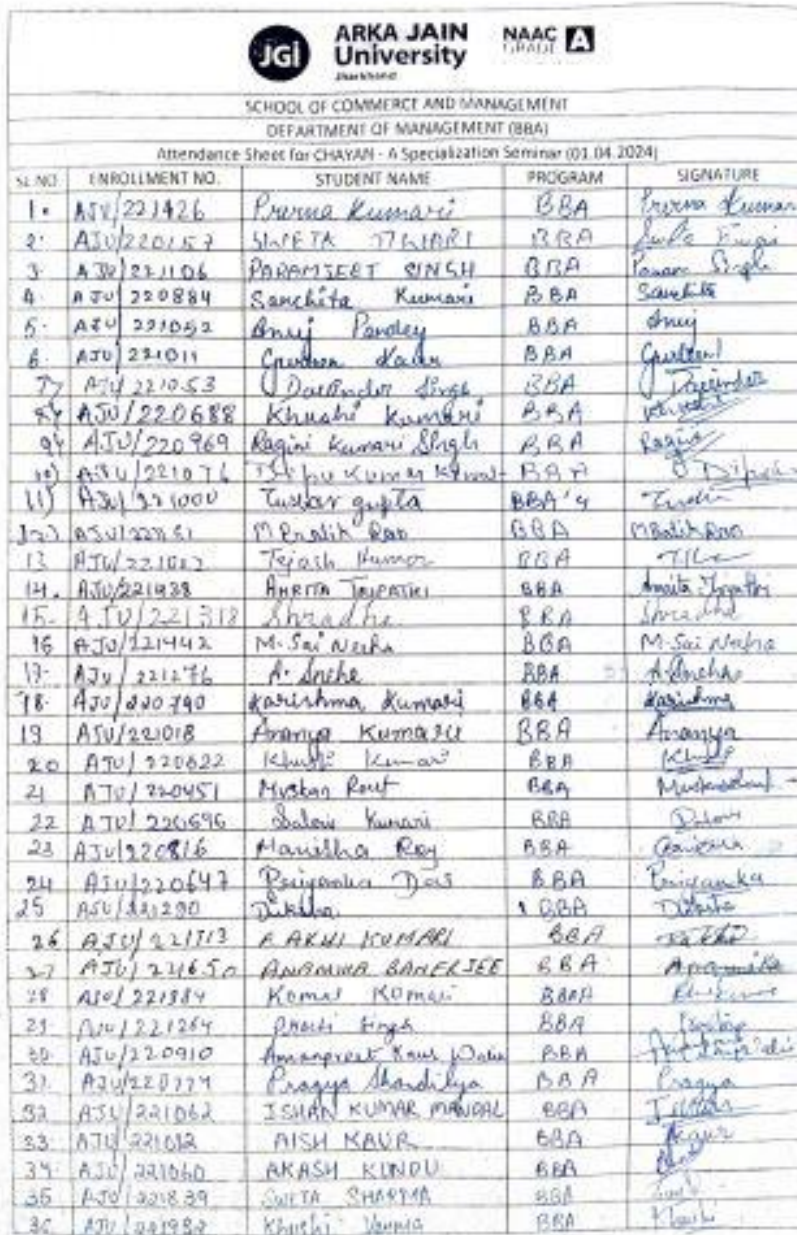 JGi ARKA JAIN University Jharkhand NAAC GRADE A
SCHOOL OF COMMERCE AND MANAGEMENT
DEPARTMENT OF MANAGEMENT (BBA)
Attendance Sheet for CHAYAN - A Specialization Seminar (01.04.2024)
SL.NO ENROLLMENT NO. STUDENT NAME PROGRAM SIGNATURE
1. AJU/221426 Prerna Kumari BBA Prerna Kumari
2. AJU/220157 SWETA TIWARI BBA
3. AJU/221106 PARAMJEET SINGH BBA Param Singh
4. AJU/220884 Sanchita Kumari BBA Sanchita
5. AJU/221052 Anuj Pandey BBA Anuj
6. AJU/221011 Kaur BBA
7) AJU/221053 Davinder Singh BBA Davinder
8) AJU/220688 Khushi Kumari BBA Khushi
9) AJU/220969 Ragini Kumari Singh BBA Ragini
10) AJU/221076 Dipu Kumar BBA
11) AJU/221000 Tushar gupta BBA
12) M Pratik Rao BBA M Pratik Rao
13 Tejash Kumar BBA
14. AJU/221938 AMRITA TRIPATHI BBA Amrita Tripathi
15. AJU/221318 Shradha BBA Shradha
16 AJU/221442 M. Sai Neeha BBA M. Sai Neha
17. AJU/221276 A. Sneha BBA A. Sneha
18. AJU/220790 Karishma Kumari BBA Karishma
19 AJU/221018 Ananya Kumari BBA Ananya
20 AJU/220622 Khushi Kumari BBA
21 AJU/220451 Muskan Rout BBA
22 AJU/220696 Saloni Kumari BBA
23 AJU/220816 Manisha Roy BBA
24 AJU/220647 Priyanka Das BBA Priyanka
25 AJU/221290 Diksha BBA
26 AJU/221713 RAKHI KUMARI BBA Rakhi
27 AJU/221650 ANAMIKA BANERJEE BBA Anamika
28 AJU/221984 Komal Kumari BBA
29 AJU/221264 Prachi Singh BBA
30. AJU/220910 Amanpreet Kaur BBA
31. Pragya Shandilya BBA Pragya
32 AJU/221062 ISHAN KUMAR MANDAL BBA
33 AJU/221012 AISH KAUR BBA Kaur
34. AJU/221060 AKASH KUNDU BBA
35 AJU/221839 SWETA SHARMA BBA
36 AJU/221982 Khushi Verma BBA Khushi